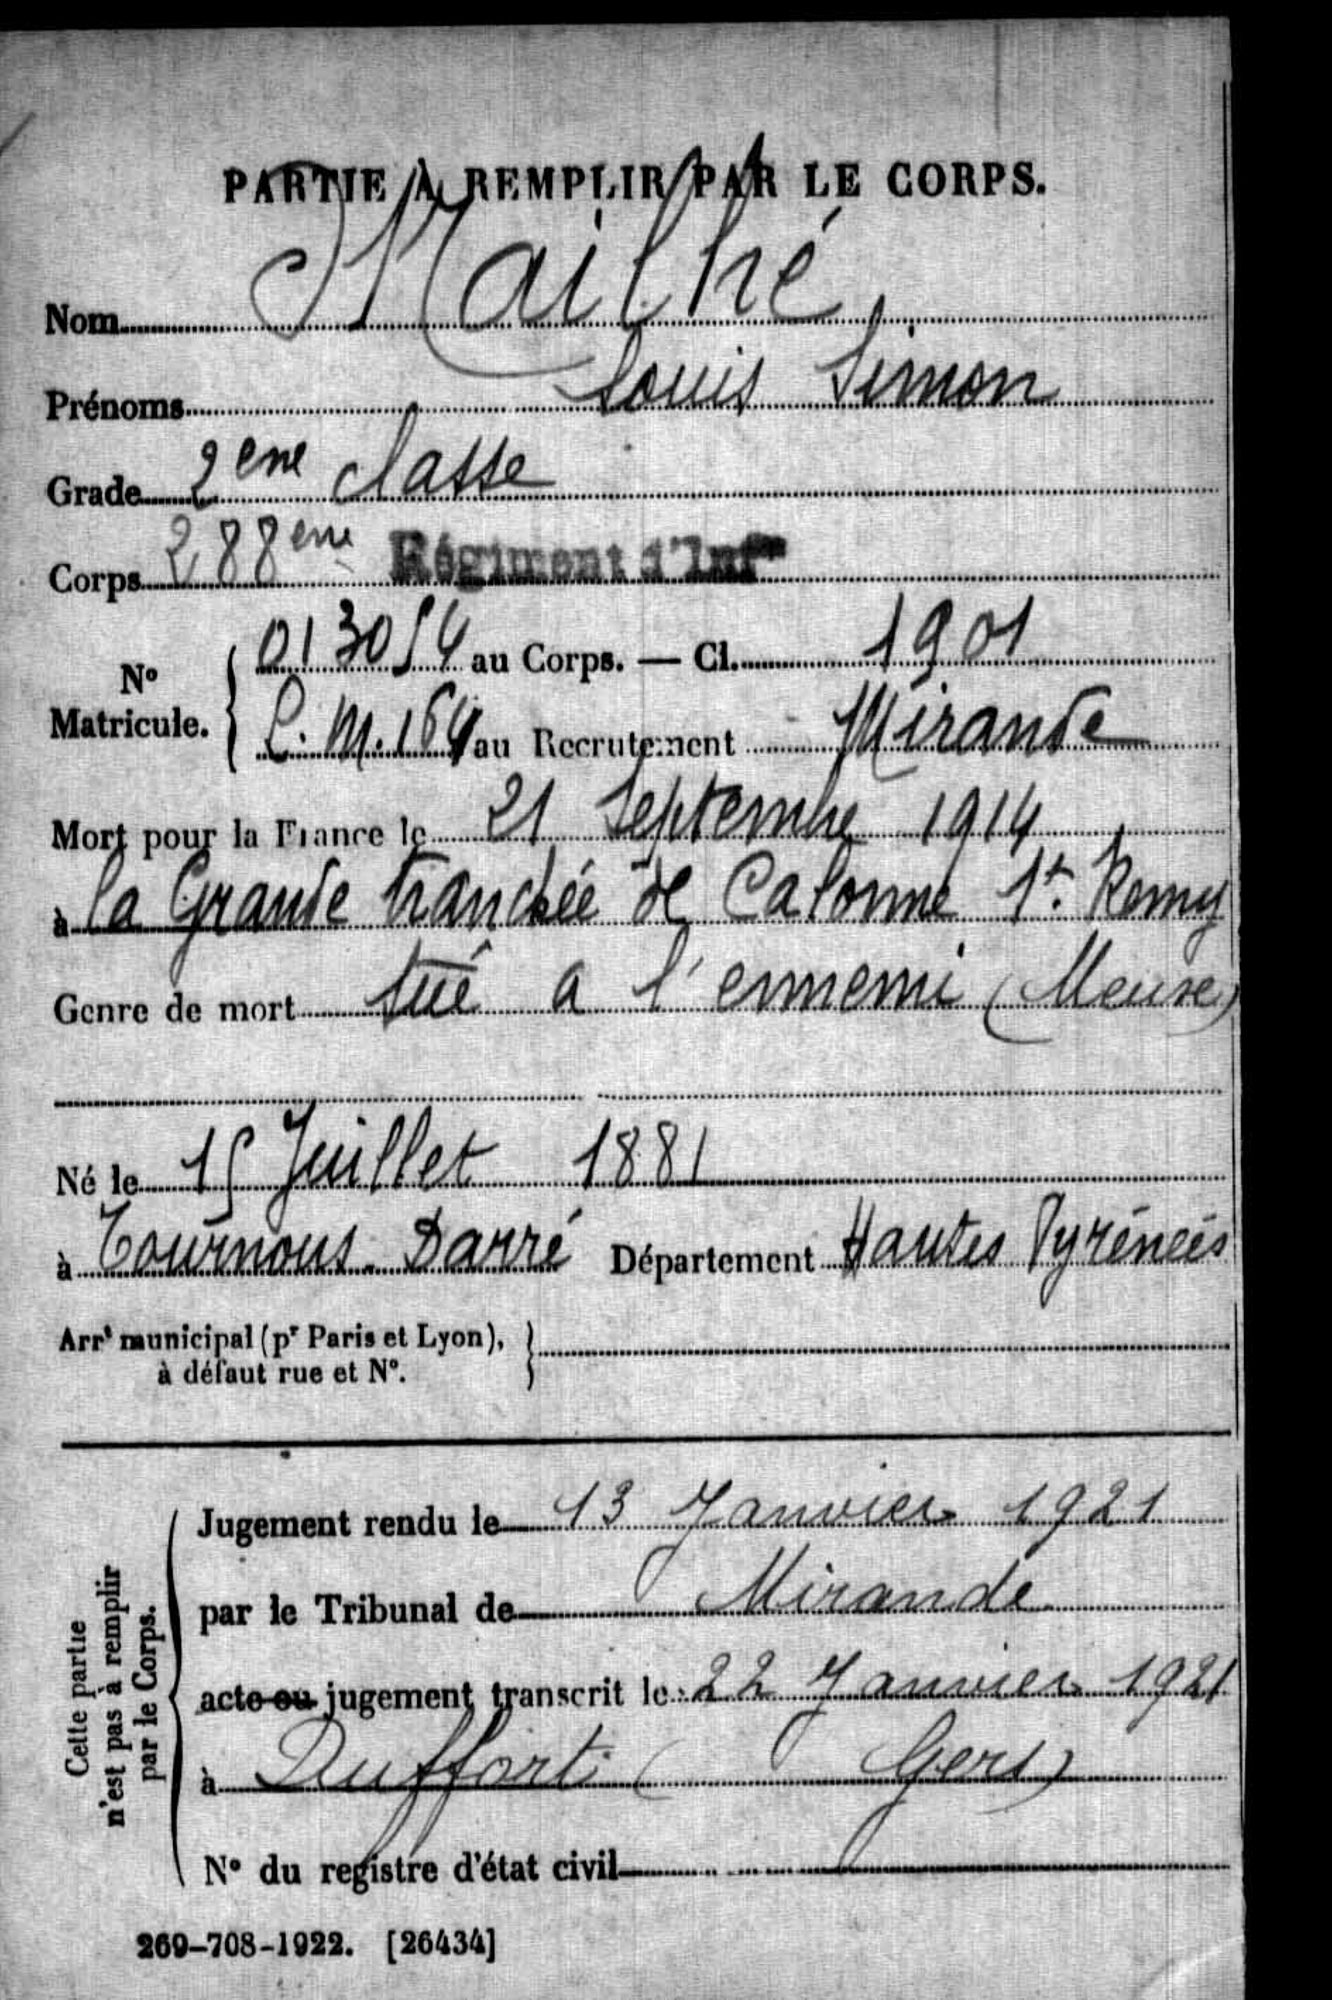 PARTIE À REMPLIR PAR LE CORPS.
Nom Mailhé
Prénoms Louis Simon
Grade 2eme classe
Corps 288eme Régiment d'Infie
No Matricule. 013054 au Corps. — Cl. 1901
L. M. 164 au Recrutement Mirande
Mort pour la France le 21 Septembre 1914
à la Grande tranchée de Calonne St. Remy
Genre de mort tué a l'ennemi (Meuse)
Né le 15 Juillet 1881
à Tournous-Darré Département Hautes Pyrénées
Arrt municipal (pr Paris et Lyon),
à défaut rue et No.
Cette partie
n'est pas à remplir
par le Corps.
Jugement rendu le 13 Janvier 1921
par le Tribunal de Mirande
acte ou jugement transcrit le 22 Janvier 1921
à Duffort (Gers)
No du registre d'état civil
269-708-1922. [26434]